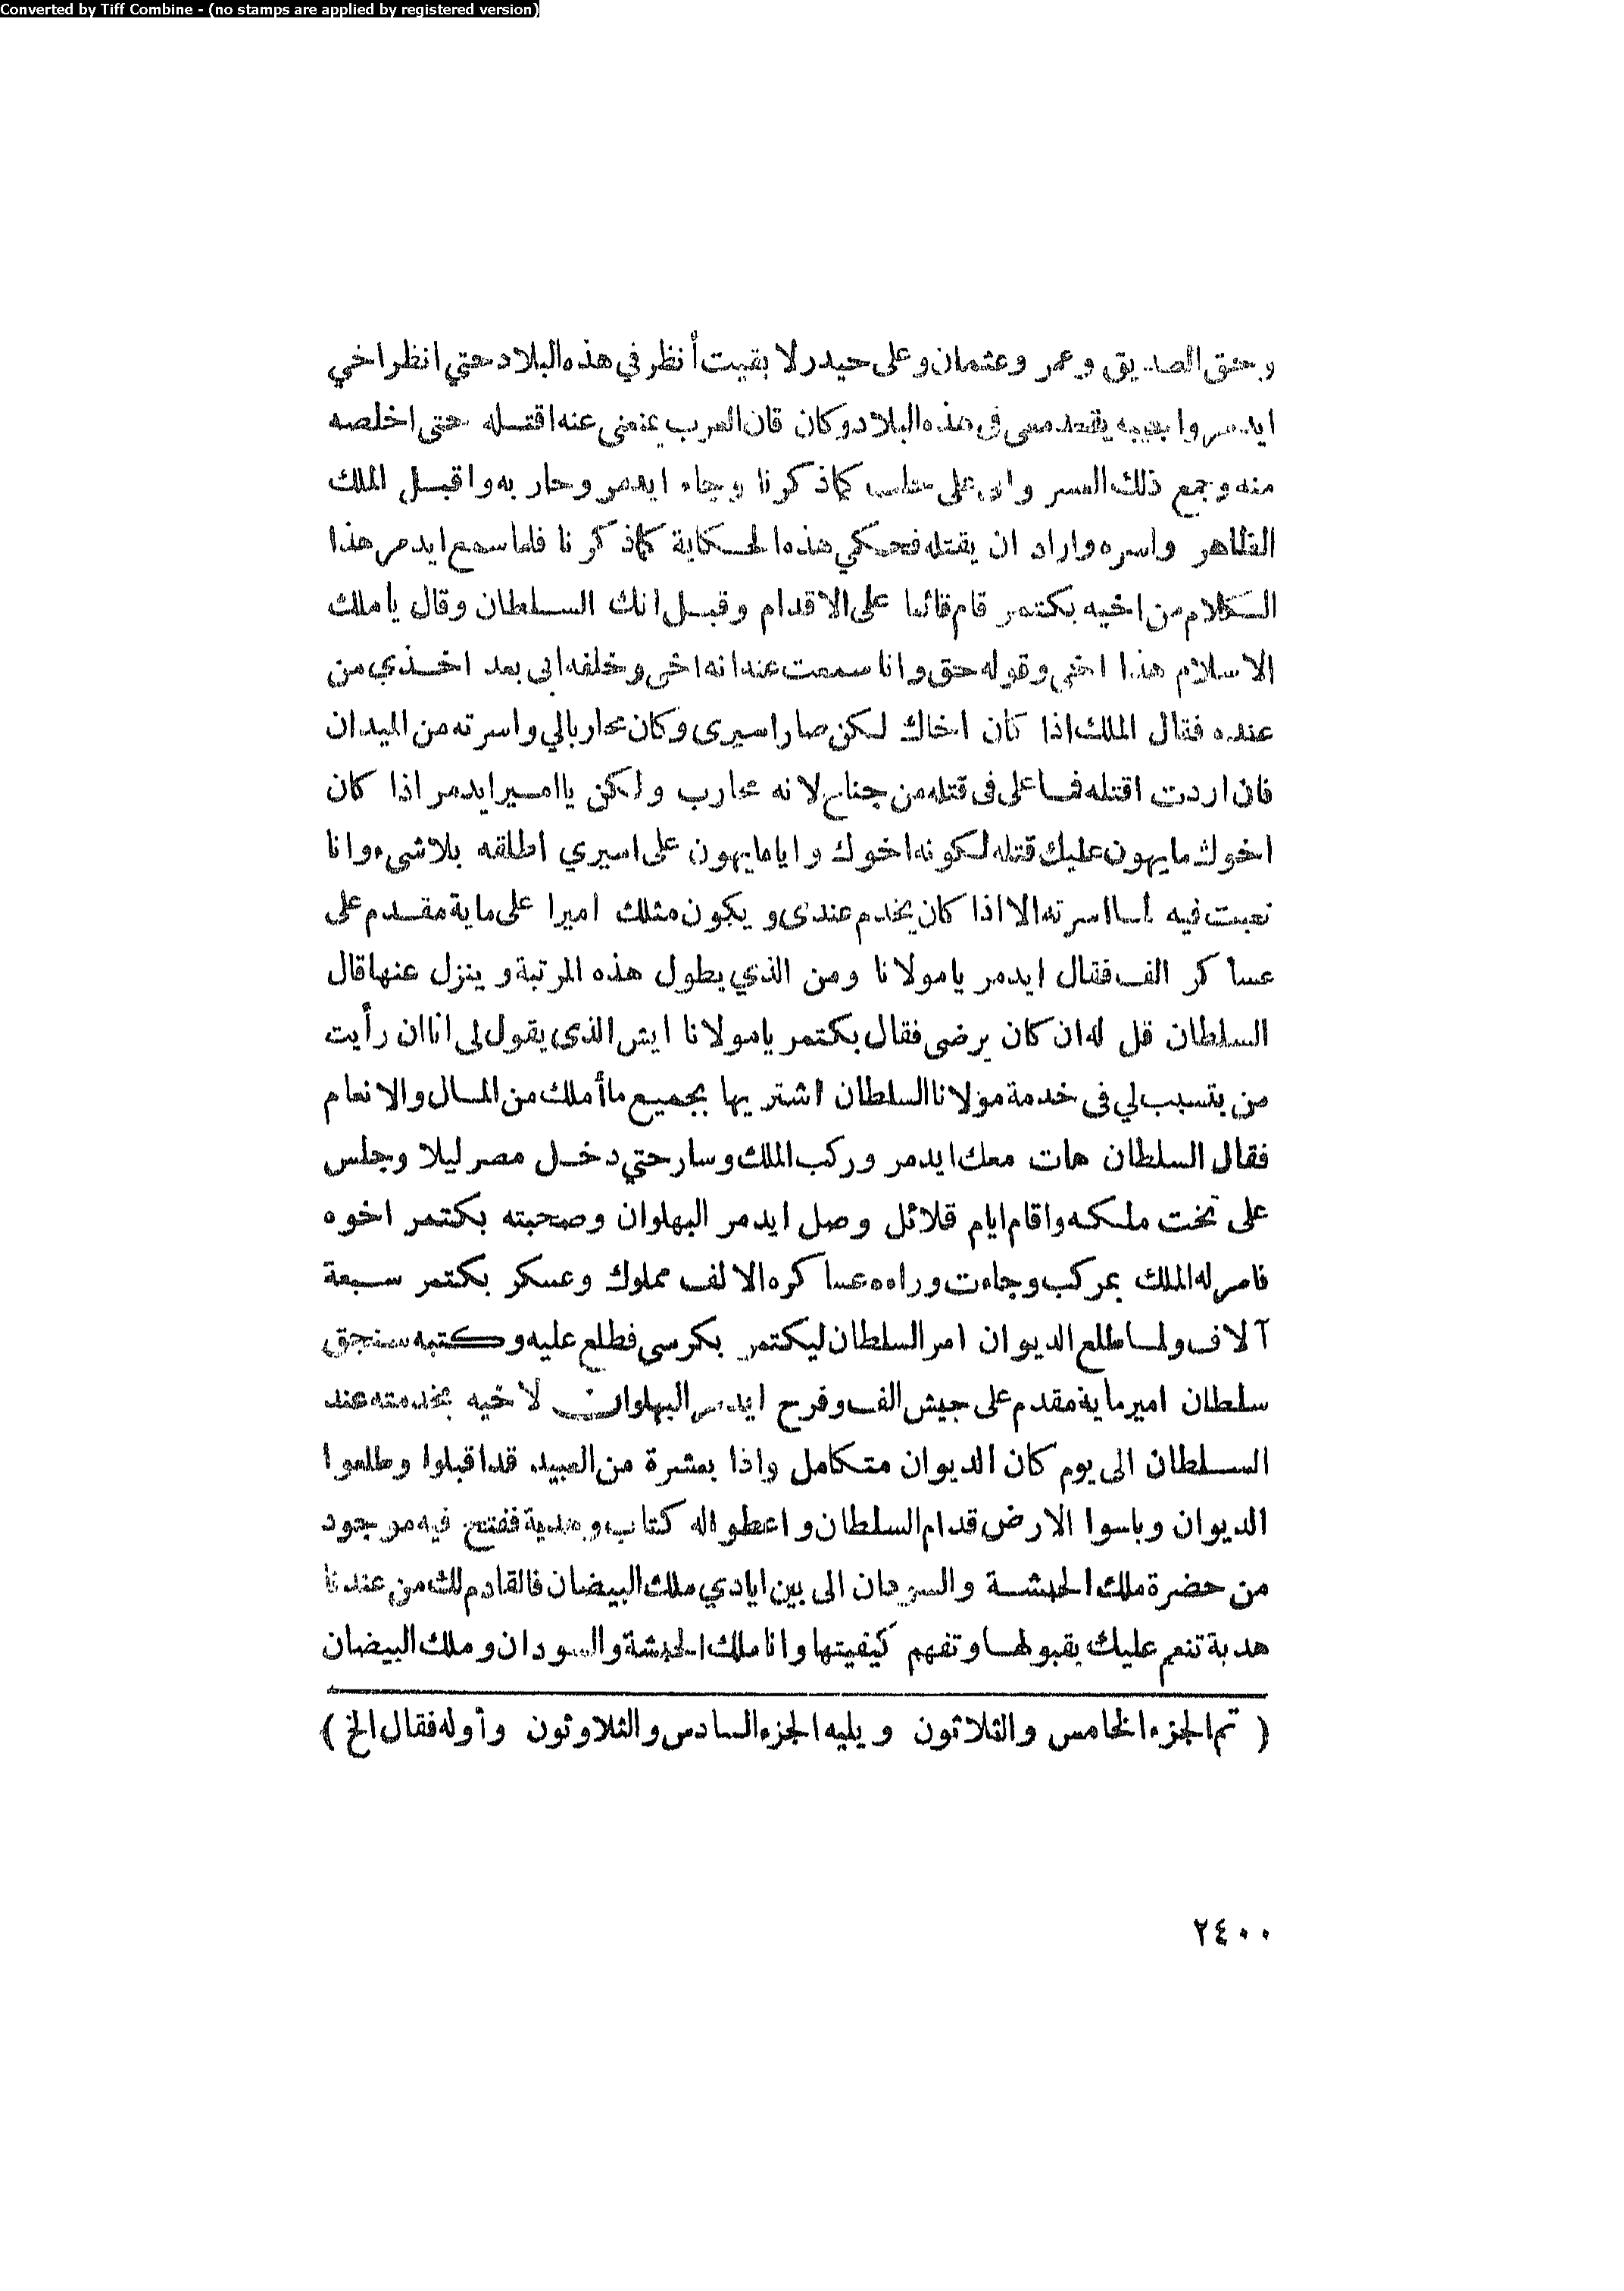 Converted by Tiff Combine - (no stamps are applied by registered version)
وحق الصديق وعمر وعثمان وعلى حيدر لا بقيت أنظر في هذه البلاد حتي انظر اخي
ايدمر واجيبه يقعد معى فى هذه البلاد وكان قان العرب يمنعنى عنه اقتله حتى اخلصه
منه وجمع ذلك العسكر واتى على حلب كما ذكرنا وجاء ايدمر وحاربه واقبل الملك
الظاهر واسره واراد ان يقتله فحكي هذه الحكاية كما ذكرنا فلما سمع ايدمر هذا
الكلام من اخيه بكتمر قام قائما على الاقدام وقبل اتك السلطان وقال يا ملك
الاسلام هذا اخى وقوله حق وانا سمعت عنه انه اخى وخلفه ابى بعد اخذي من
عنده فقال الملك اذا كان اخاك لكن صار اسيرى وكان محاربالي واسرته من الميدان
فان اردت اقتله فما على فى قتله من جناح لانه محارب ولكن يا امير ايدمر اذا كان
اخوك ما يهون عليك قتله لكونه اخوك وايا ما يهون على اسيري اطلقه بلا شىء وانا
تعبت فيه لما اسرته الا اذا كان يخدم عندى ويكون مثلك اميرا على ماية مقدم على
عساكر الف فقال ايدمر يا مولانا ومن الذي يطول هذه المرتبة وينزل عنها قال
السلطان قل له ان كان يرضى فقال بكتمر يا مولانا ايش الذى يقول لى انا ان رأيت
من يتسبب لي فى خدمة مولانا السلطان اشتريها بجميع ما أملك من المال والانعام
فقال السلطان هات معك ايدمر وركب الملك وسار حتي دخل مصر ليلا وجلس
على تخت ملكه واقام ايام قلائل وصل ايدمر البهلوان وصحبته بكتمر اخوه
فامر له الملك بمركب وجاءت وراءه عساكره الالف مملوك وعسكر بكتمر سبعة
آلاف ولما طلع الديوان امر السلطان ليكتمر بكرسى فطلع عليه وكتبه سنجق
سلطان امير ماية مقدم على جيش الف وفرح ايدمر البهلوان لاخيه بخدمته عند
السلطان الى يوم كان الديوان متكامل واذا بعشرة من العبيد قد اقبلوا وطلعوا
الديوان وباسوا الارض قدام السلطان واعطوا له كتاب وهدية ففتح فيه موجود
من حضرة ملك الحبشة والسودان الى بين ايادي ملك البيضان فالقادم لك من عندنا
هدية تنعم عليك بقبولها وتفهم كيفيتها وانا ملك الحبشة والسودان وملك البيضان
( تم الجزء الخامس والثلاثون ويليه الجزء السادس والثلاوثون وأوله فقال الخ )
٢٤٠٠